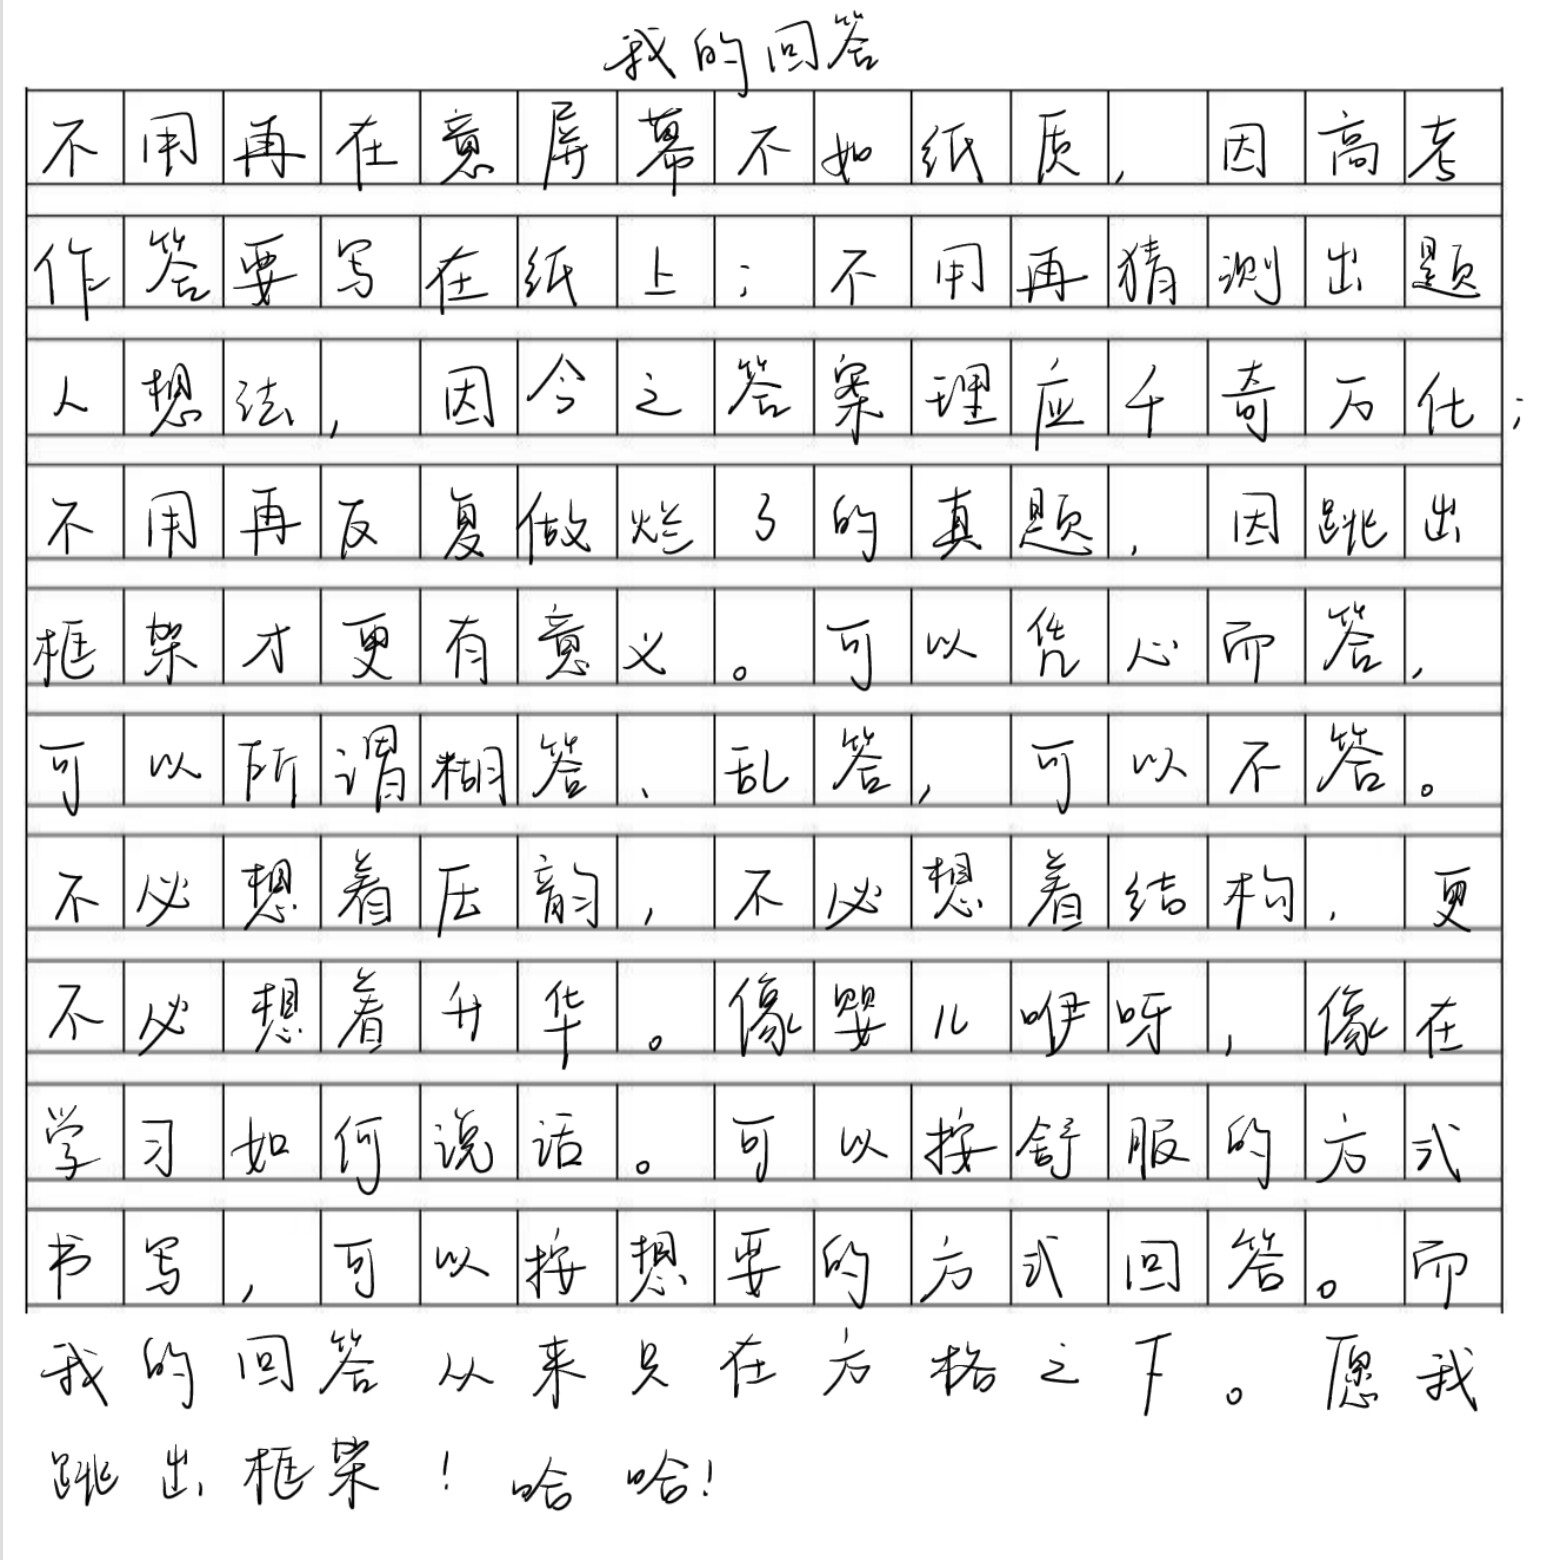 我的回答
不用再在意屏幕不如纸质，因高考
作答要写在纸上；不用再猜测出题
人想法，因今之答案理应千奇万化；
不用再反复做烂了的真题，因跳出
框架才更有意义。可以凭心而答，
可以所谓糊答、乱答，可以不答。
不必想着压韵，不必想着结构，更
不必想着升华。像婴儿咿呀，像在
学习如何说话。可以按舒服的方式
书写，可以按想要的方式回答。而
我的回答从来只在方格之下。愿我
跳出框架！哈哈！